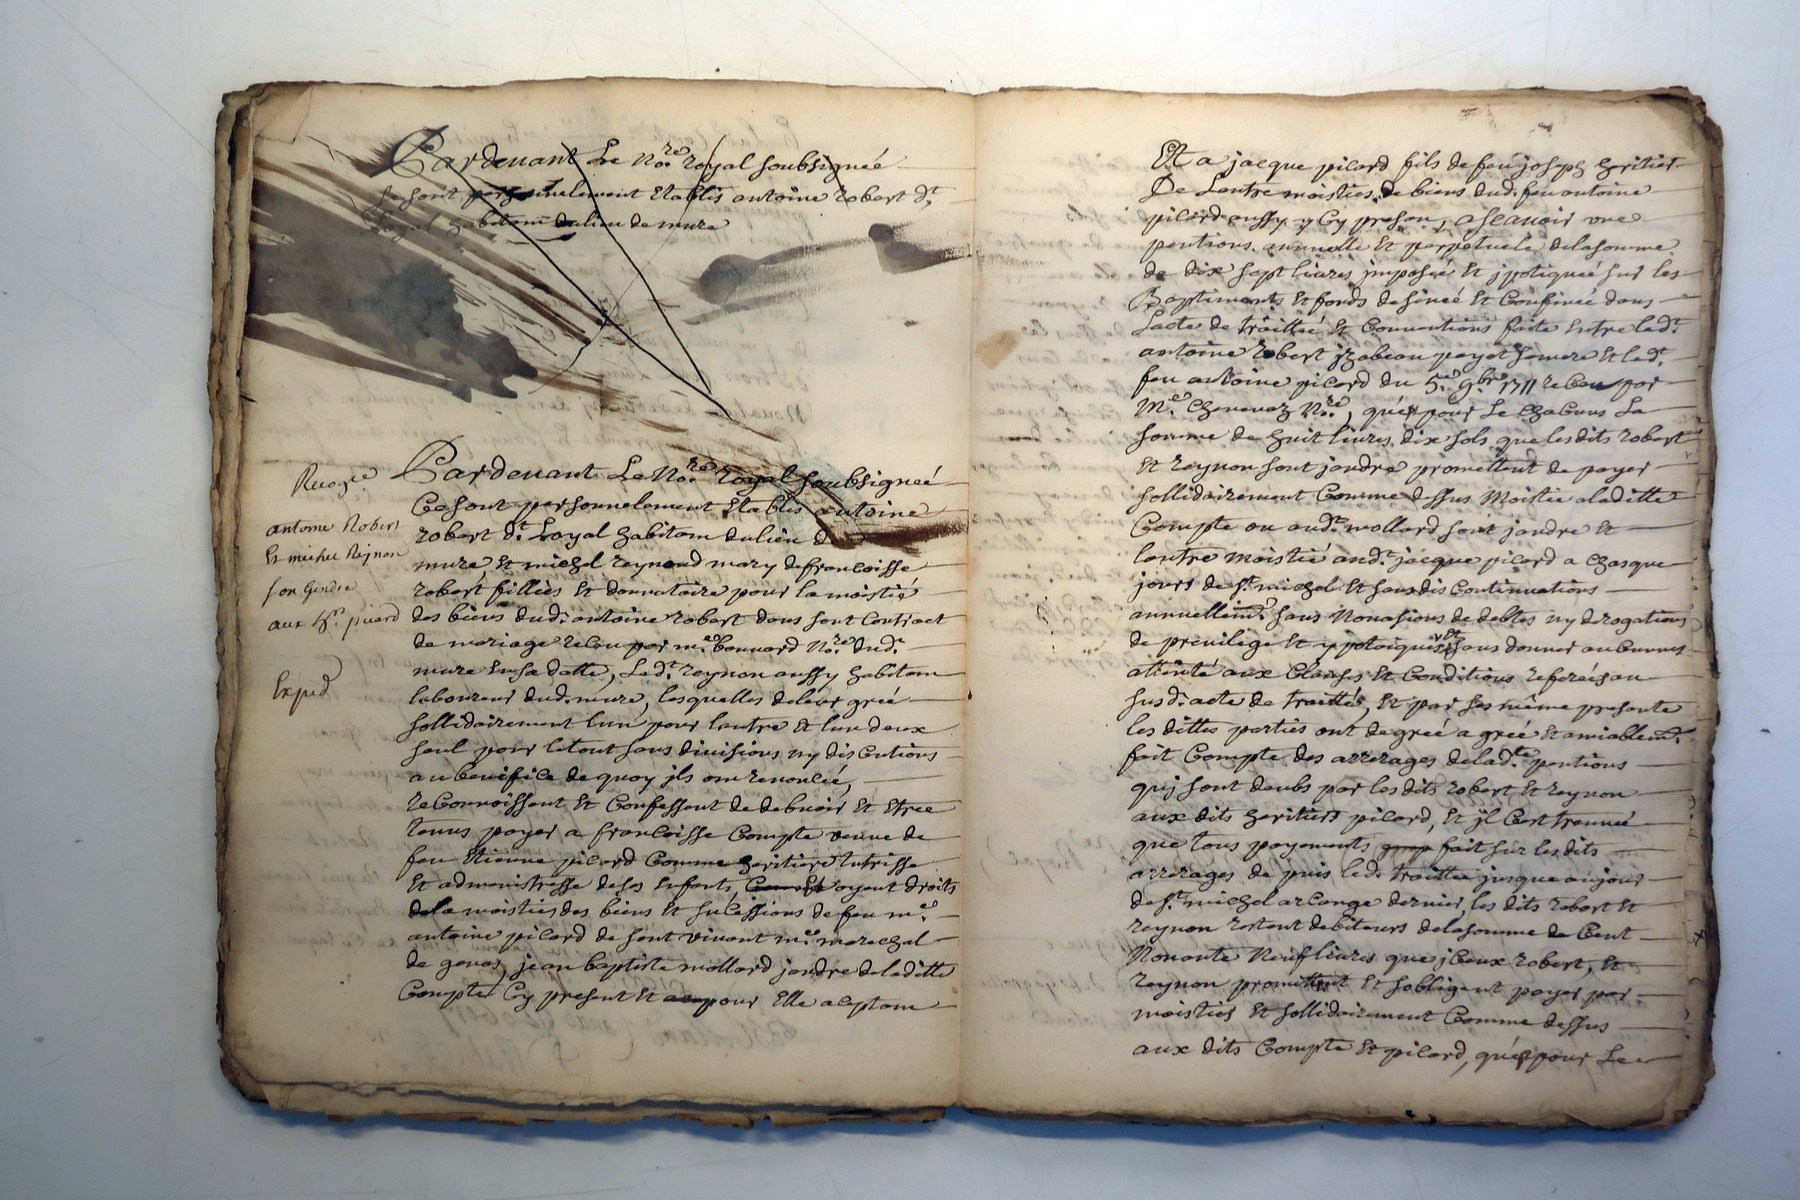 Pardevant Le No.re royal soubsigneé
se sont personnelement Etablis antoine robert d.t
Loyal habitant dulieu de mure
Pardevant Le No.re royal soubsigneé
Ce sont personnelement Etablis antoine
robert d.t Loyal habitant dulieu de
mure et michel reynond mary defrancoisse
robert filliés et donnataire pour la moistié
des biens dud. antoine robert dans sont Contract
de mariage receu par m.e bonnard No.re dud.
mure Ensa datte, Led.t reynon aussy habitant
laboureur dud. mure, lesquelles deleur greé
sollidairement lun pour lautre et lun deux
seul pour letout sans divisions ny discutions
au benifice de quoy ils ont renonceé,
reConnoissent et Confessent de debvoir et Etre
tenus payer a francoisse Compte veuve de
feu Etienne picard Comme heritiere tutrisse
et administresse deses Enfants, ayant droits
dela moisties des biens et sucessions de feu m.e
antoine picard de sont vivant m.e marechal
de genas, jean baptiste mollard jandre deladitte
Compte Cy present et pour Elle aceptant
antoine Robert
Et michel Reynon
son Gendre
aux h.rs picard
Exped
Et a jacque picard fils de feu joseph heritier
De Lautre moisties de biens dud. feu antoine
picard aussy y Cy presant, ascavoir une
pentions annuelle et perpetuele delasomme
de dix sept livres imposeé et ypotiqueé sur les
Baptiments et fonds desineé et Confineé dans
Lacte de traitteé et Conventions faite entre led.t
antoine robert yzabeau payet sa mere et led.t
feu antoine picard du 5.e 9.bre 1711 receu par
M.e Chenevaz No.re, quest pour Le Chacuns La
somme de huit livres dix sols que lesdits robert
et reynon sont jandre promettent de payer
sollidairement Comme dessus Moistie aladitte
Compte ou aud.t mollard sont jandre et
lautre moistié aud.t jacque picard a Chasque
jours de s.t michel et sansdis Continuations
annuellem.t sans Novasions de debtes ny derogations
de previlege et ypotaiques et sans donner aucunes
attinte aux Clauses et Conditions refereés au
susd. acte de traitteé, et par ses même presante
les dittes parties ont de greé a greé et amiablem.t
fait Compte des arrerages delad.te pentions
quj sont deubs par les dits robert et reynon
aux dits heritiers picard, et jl Cest trouveé
que tous payements fait sur les dits
arrerages de puis led. traittee jusque aujour
de s.t michel arcange dernier, les dits robert et
reynon restent debiteurs delasomme de Cent
Nonante Neuf livres que jCeux robert, et
reynon promettent et sobligent payer par
moisties et sollidairement Comme dessus
aux dits Compte et picard, quest pour Le